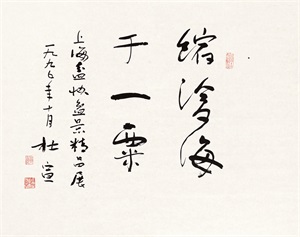 缩沧海
于一粟
上海盆协盆景精品展
一九九年十月 杜宣